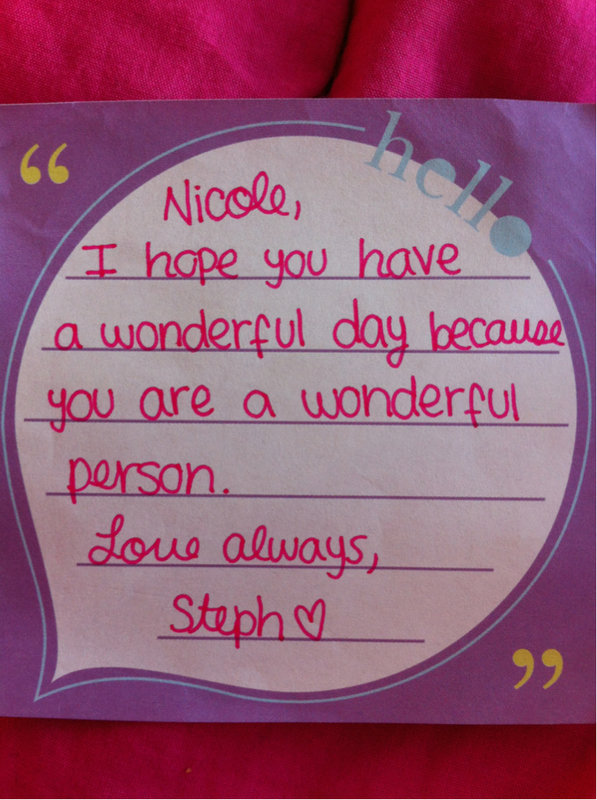 “
hello
Nicole,
I hope you have
a wonderful day because
you are a wonderful
person.
Love always,
Steph♡
”